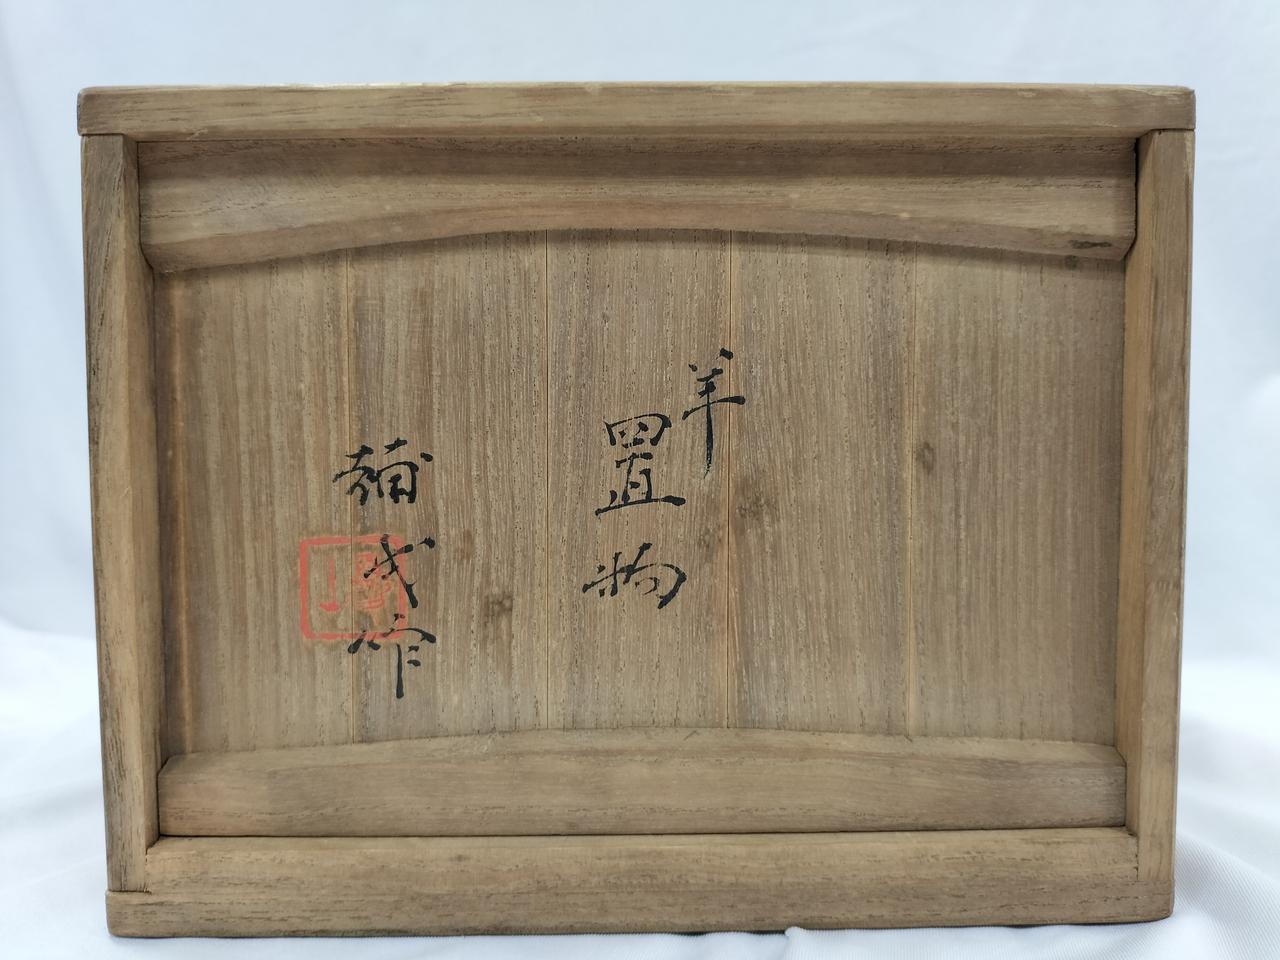 羊置物
輔 作